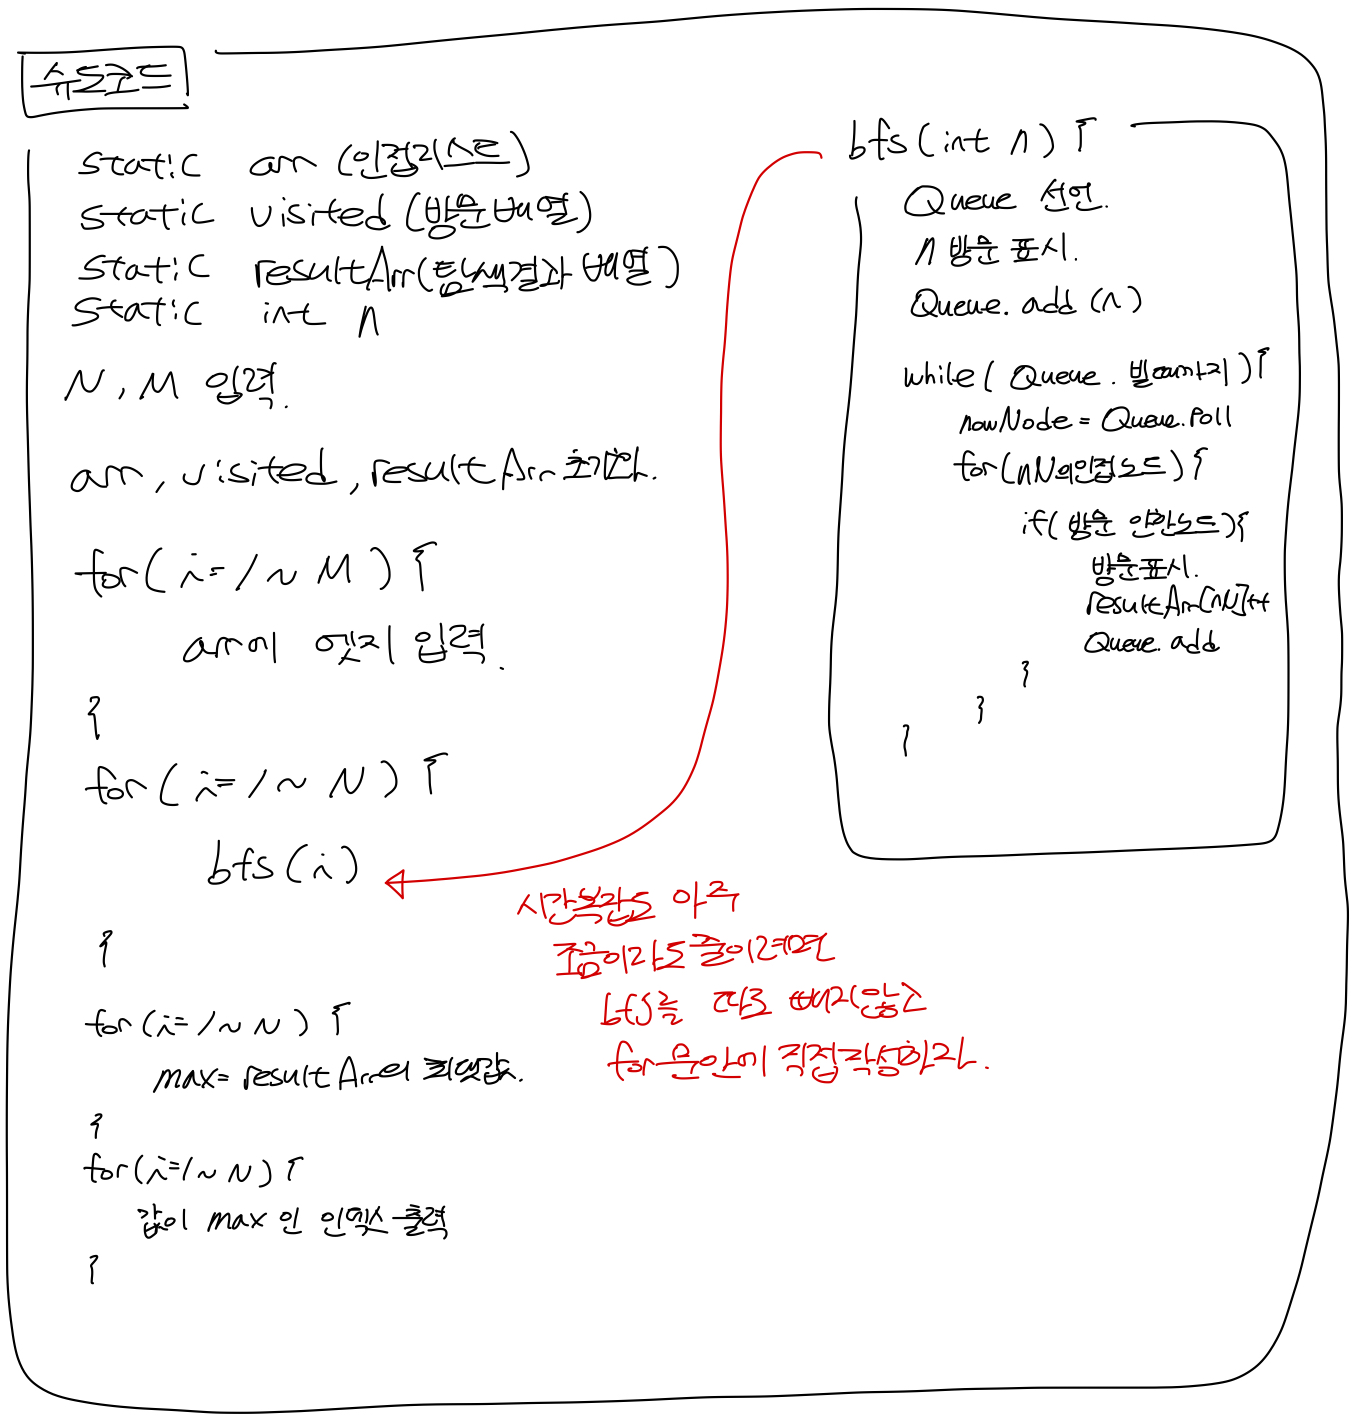 수도코드
static arr (인접리스트)
static visited (방문배열)
static resultArr(탐색결과 배열)
static int n
N, M 입력.
arr, visited, resultArr 초기화.
for( i= 1 ~ M ) {
arr에 엣지 입력.
}
for ( i= 1 ~ N ) {
bfs (i)
}
for (i= 1 ~ N ) {
max= resultArr의 최댓값.
}
for(i=1~ N ) {
값이 max 인 인덱스 출력
}
bfs (int n) {
Queue 선언.
n 방문 표시.
Queue. add (n)
while( Queue. 빌때까지 ){
nowNode = Queue.poll
for(nN의인접노드) {
if( 방문 안한노드){
방문표시.
resultArr[nN]++
Queue. add
}
}
}
시간복잡도 아주
조금이라도 줄이려면
bfs를 따로 빼지않고
for문안에 직접작성하라.